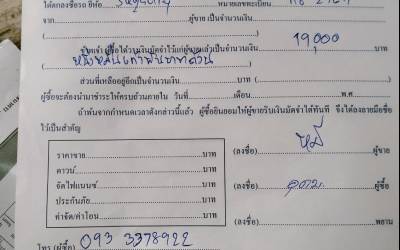 ได้ตกลงซื้อรถ ยี่ห้อ หมายเลขทะเบียน
จาก ผู้ขาย เป็นจำนวนเงิน
ผู้ซื้อได้วางเงินมัดจำไว้แก่ผู้ขายแล้วเป็นจำนวนเงิน 19,000 บาท
หนึ่งหมื่นเก้าพันบาทถ้วน
ส่วนที่เหลืออยู่อีกเป็นจำนวนเงิน บาท
ผู้ซื้อจะต้องนำมาชำระให้ครบถ้วนภายใน วันที่ เดือน พ.ศ.
ถ้าพ้นจากกำหนดเวลาดังกล่าวนี้แล้ว ผู้ซื้อยินยอมให้ผู้ขายริบเงินมัดจำได้ทันที จึงได้ลงลายมือชื่อ
ไว้เป็นสำคัญ
ราคาขาย บาท (ลงชื่อ) ผู้ขาย
ดาวน์ บาท
จัดไฟแนนซ์ บาท (ลงชื่อ) ผู้ซื้อ
ประกันภัย บาท
ค่าจัด/ค่าโอน บาท (ลงชื่อ) พยาน
โทร (ผู้ซื้อ) 093 3378922